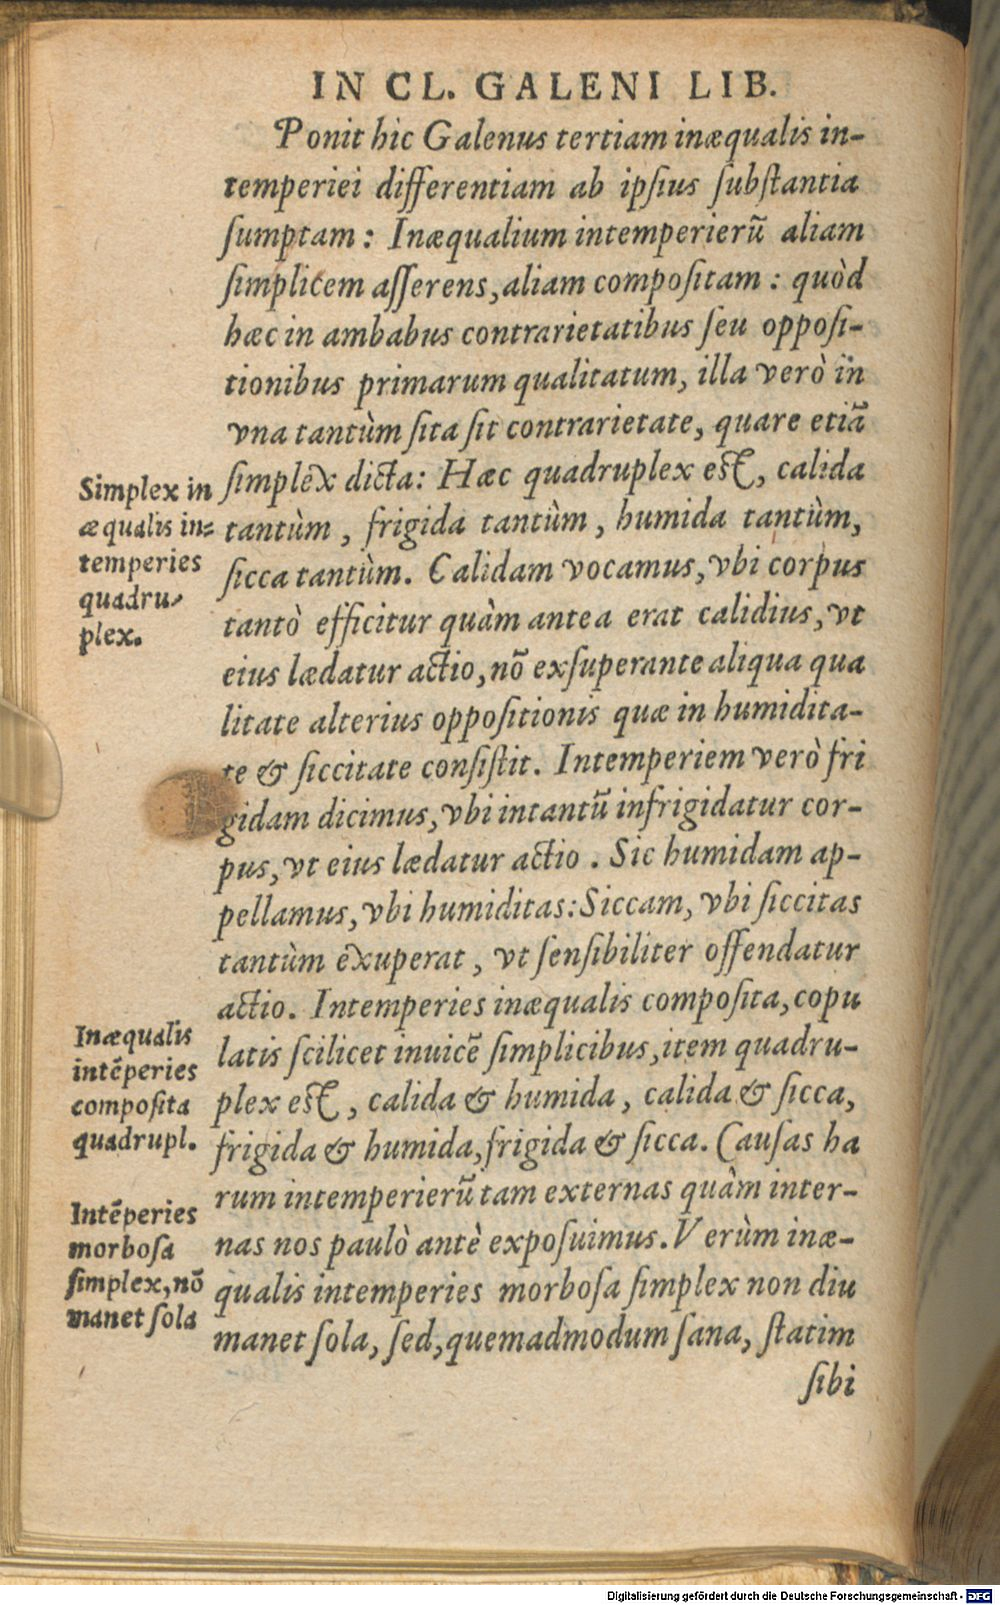 IN CL. GALENI LIB.
Ponit hic Galenus tertiam inæqualis in-
temperiei differentiam ab ipsius substantia
sumptam : Inæqualium intemperierũ aliam
simplicem asserens, aliam compositam : quòd
hæc in ambabus contrarietatibus seu opposi-
tionibus primarum qualitatum, illa verò in
vna tantùm sita sit contrarietate, quare etiã
simplex dicta: Hæc quadruplex est, calida
tantùm, frigida tantùm, humida tantùm,
sicca tantùm. Calidam vocamus, vbi corpus
tantò efficitur quàm antea erat calidius, vt
eius lædatur actio, nõ exsuperante aliqua qua
litate alterius oppositionis quæ in humidita-
te & siccitate consistit. Intemperiem verò fri
gidam dicimus, vbi intantũ infrigidatur cor-
pus, vt eius lædatur actio. Sic humidam ap-
pellamus, vbi humiditas: Siccam, vbi siccitas
tantùm exuperat, vt sensibiliter offendatur
actio. Intemperies inæqualis composita, copu
latis scilicet inuicẽ simplicibus, item quadru-
plex est, calida & humida, calida & sicca,
frigida & humida, frigida & sicca. Causas ha
rum intemperierũ tam externas quàm inter-
nas nos paulò antè exposuimus. Verùm inæ-
qualis intemperies morbosa simplex non diu
manet sola, sed, quemadmodum sana, statim
sibi
Simplex in
æqualis in-
temperies
quadru-
plex.
Inæqualis
intẽperies
composita
quadrupl.
Intẽperies
morbosa
simplex, nõ
manet sola
Digitalisierung gefördert durch die Deutsche Forschungsgemeinschaft - DFG